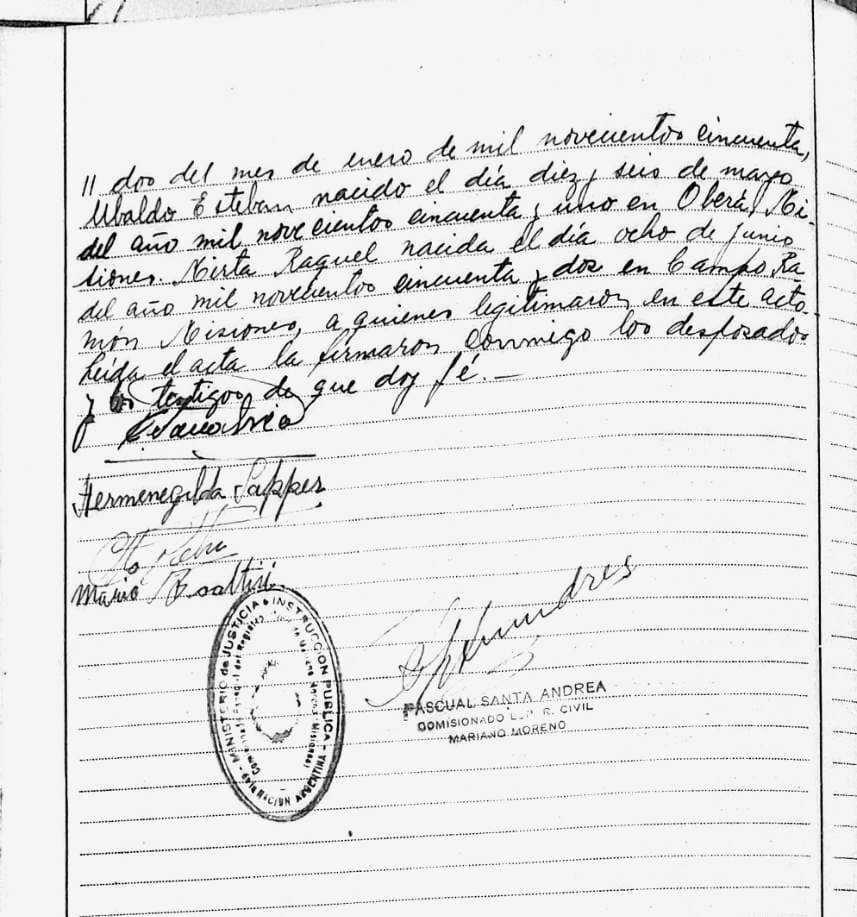 11 dos del mes de enero de mil novecientos cincuenta,
Ubaldo Esteban nacido el día diez y seis de mayo
del año mil novecientos cincuenta y uno en Oberá, Mi-
siones. Mirta Raquel nacida el día ocho de junio
del año mil novecientos cincuenta y dos en Campo Ra-
món Misiones, a quienes legitimaron en este acto.
Leída el acta la firmaron conmigo los desposados
y los testigos de que doy fé.—
Hermenegilda Sappes
Mario
MINISTERIO de JUSTICIA e INSTRUCCION PUBLICA
NACION ARGENTINA
PASCUAL SANTA ANDREA
COMISIONADO R. CIVIL
MARIANO MORENO